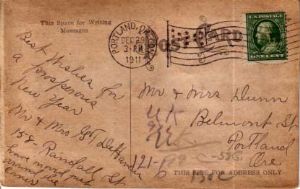 This Space for Writing
Messages
PORTLAND, OREGON
DEC 28
1911
POST CARD
ONE CENT
Best Wishes for
a prosperous
New Year
Mr & Mrs
158 Randall St
Mr & Mrs Dunn
Belmont St
Portland
Ore.
121-6
THIS SIDE FOR ADDRESS ONLY